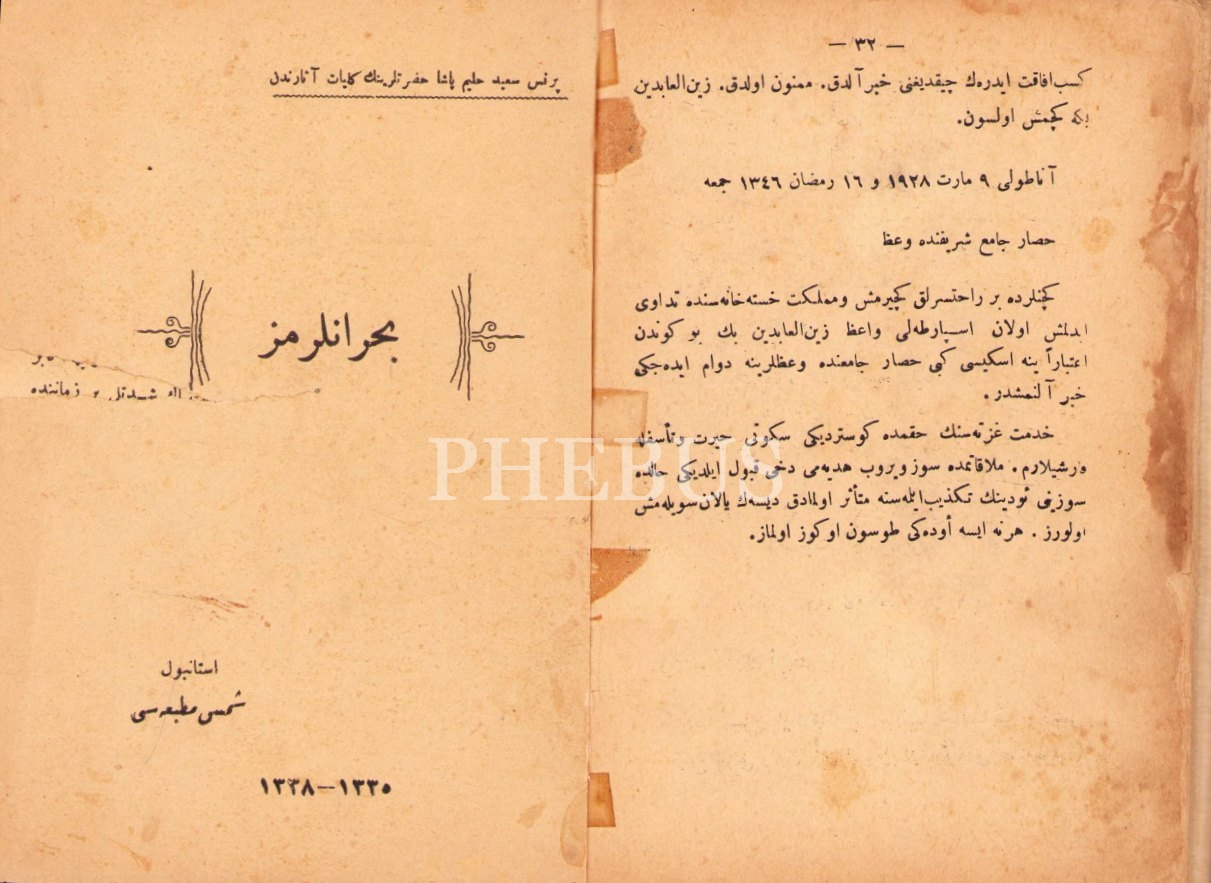 — ٣٢ —
كسب افاقت ايدرەك چيقديغنى خبر آلدق. ممنون اولدق. زين العابدين
بكه كچمش اولسون.
آناطولى ٩ مارت ١٩٢٨ و ١٦ رمضان ١٣٤٦ جمعه
حصار جامع شريفنده وعظ
كچنلرده بر راحتسزلق كچيرمش ومملكت خسته خانه سنده تداوى
ايدلمش اولان اسپارطه لى واعظ زين العابدين بك بو كوندن
اعتباراً ينه اسكيسى كبى حصار جامعنده وعظلرينه دوام ايده جكى
خبر آلنمشدر.
خدمت غزته سنك حقمده كوسترديكى سكوتى حيرت وتأسفله
قارشيلارم. ملاقاتمده سوز ويروب هديه مى دخى قبول ايلديكى حالده
سوزينى كندينك تكذيب ايتمه سنه متأثر اولمادق ديسەك يالان سويله مش
اولورز. هر نه ايسه أوده كى طوسون اوكوز اولماز.
پرنس سعيد حليم پاشا حضرتلرينك كليات آثارندن
بحرانلرمز
شدتلى
زماننده
استانبول
شمس مطبعه سى
١٣٣٥—١٣٣٨
PHEBUS